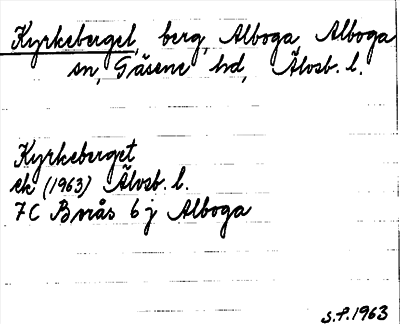 Kyrkeberget, berg, Alboga, Alboga
sn, Gäsene hd, Älvsb. l.
Kyrkeberget
ek (1963) Älvsb. l.
7C Bnås 6 j Alboga
S.F. 1963